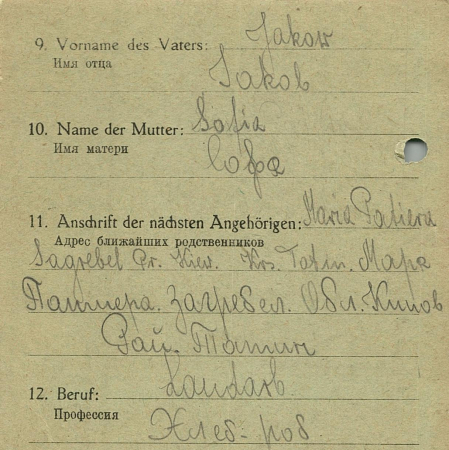 9. Vorname des Vaters: Jakow
Имя отца
Jakob
10. Name der Mutter: Sofia
Имя матери
Софа
11. Anschrift der nächsten Angehörigen: Maria
Адрес ближайших родственников
Sagrebel Pr. Kiew. Krs. Tatin.
Загребел. Обл.
Рай.
12. Beruf: Landarb.
Профессия
Хлеб-роб.